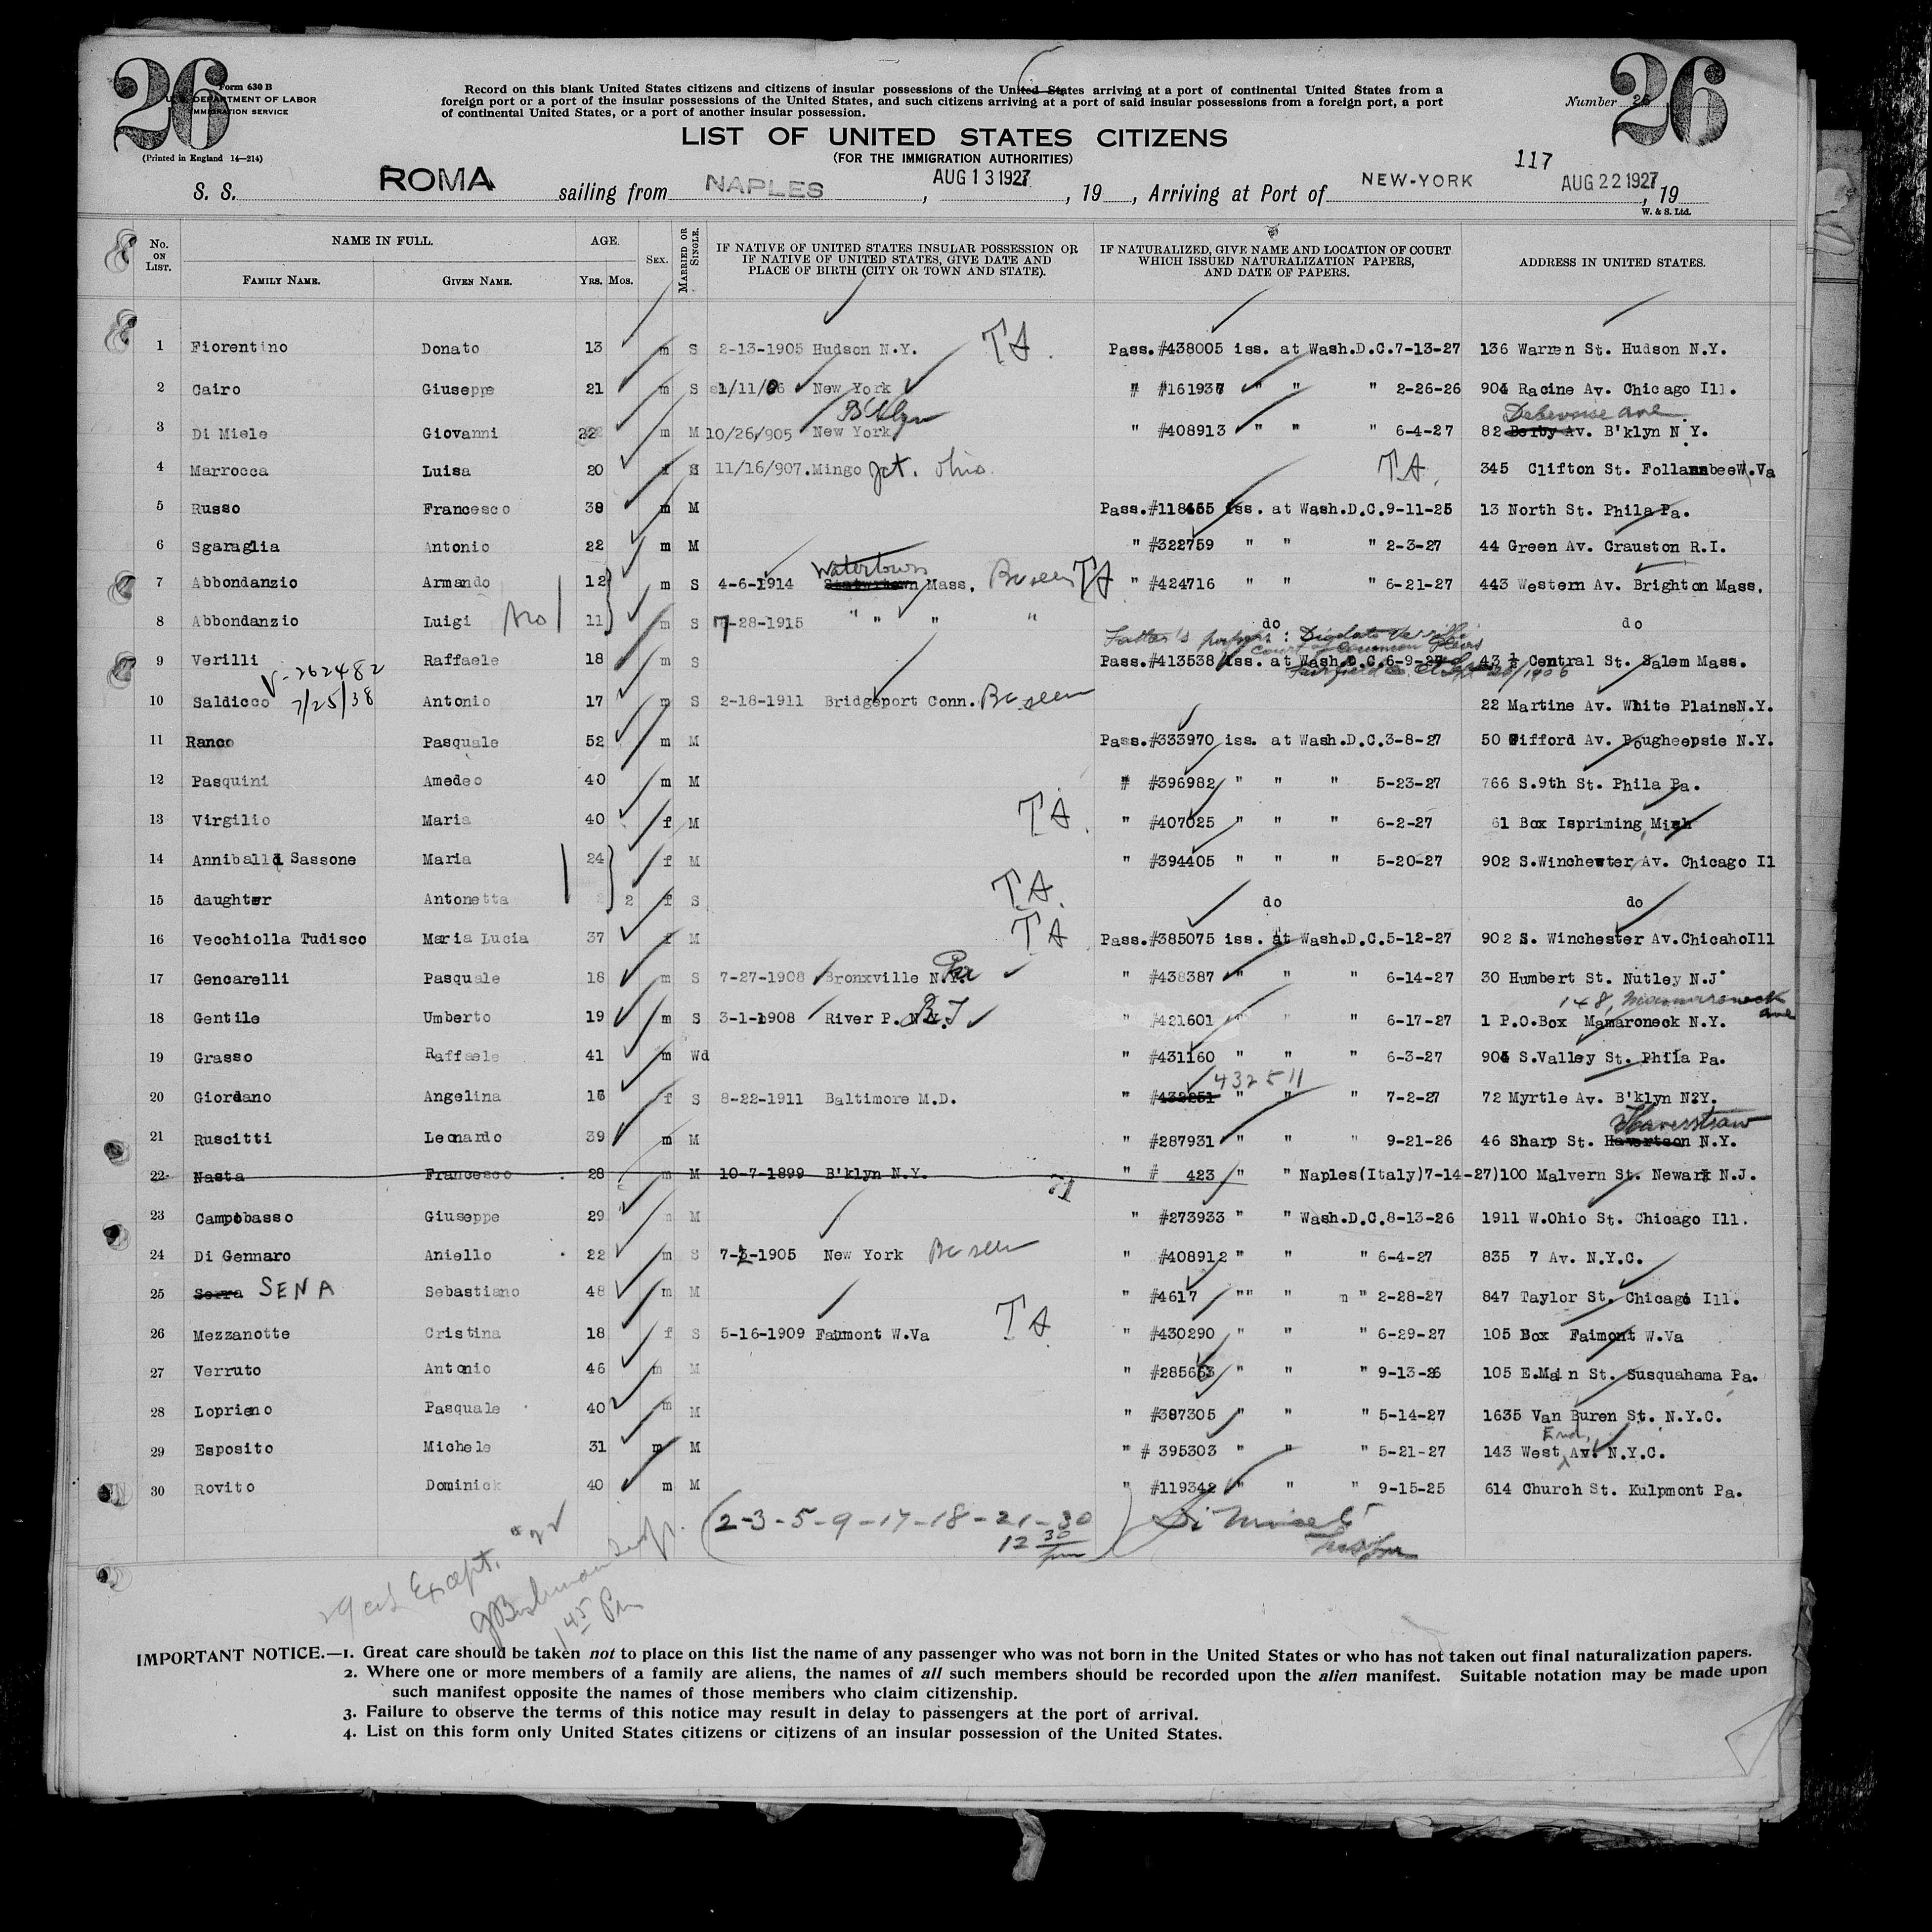 26
26
Form 630 B
U. S. DEPARTMENT OF LABOR
IMMIGRATION SERVICE
(Printed in England 14—214)
Record on this blank United States citizens and citizens of insular possessions of the United States arriving at a port of continental United States from a
foreign port or a port of the insular possessions of the United States, and such citizens arriving at a port of said insular possessions from a foreign port, a port
of continental United States, or a port of another insular possession.
Number 26
LIST OF UNITED STATES CITIZENS
(FOR THE IMMIGRATION AUTHORITIES)
117
S. S. ROMA sailing from NAPLES, AUG 13 1927, 19 , Arriving at Port of NEW-YORK, AUG 22 1927, 19
W. & S. Ltd.
No. ON LIST. NAME IN FULL. FAMILY NAME. GIVEN NAME. AGE. YRS. MOS. SEX. MARRIED OR SINGLE. IF NATIVE OF UNITED STATES INSULAR POSSESSION OR IF NATIVE OF UNITED STATES, GIVE DATE AND PLACE OF BIRTH (CITY OR TOWN AND STATE). IF NATURALIZED, GIVE NAME AND LOCATION OF COURT WHICH ISSUED NATURALIZATION PAPERS, AND DATE OF PAPERS. ADDRESS IN UNITED STATES.
1 Fiorentino Donato 13 m S 2-13-1905 Hudson N.Y. TA. Pass.#438005 iss. at Wash.D.C.7-13-27 136 Warren St. Hudson N.Y.
2 Cairo Giuseppe 21 m S 1/11/06 New York " #161937 " " " 2-26-26 904 Racine Av. Chicago Ill.
B'klyn Debevoise ave
3 Di Miele Giovanni 22 m M 10/26/905 New York " #408913 " " " 6-4-27 82 Av. B'klyn N.Y.
4 Marrocca Luisa 20 f S 11/16/907.Mingo Jct. Ohio. TA. 345 Clifton St. Follansbee W.Va
5 Russo Francesco 38 m M Pass.#118455 iss. at Wash.D.C.9-11-25 13 North St. Phila Pa.
6 Sgaraglia Antonio 22 m M " #322759 " " " 2-3-27 44 Green Av. Crauston R.I.
Watertown
7 Abbondanzio Armando 12 m S 4-6-1914 Mass. Bc seen TA " #424716 " " " 6-21-27 443 Western Av. Brighton Mass.
8 Abbondanzio Luigi 11 m S 7-28-1915 " " " " do do
Father's papers: Diodato Verilli
Court of Common Pleas
9 Verilli Raffaele 18 m S Pass.#413538 iss. at Wash.D.C.6-9-27 43 ½ Central St. Salem Mass.
V-262482 Fairfield Co. Ct Sept 26/1906
10 Saldicco 7/25/38 Antonio 17 m S 2-18-1911 Bridgeport Conn. Bc seen 22 Martine Av. White PlainsN.Y.
11 Ranco Pasquale 52 m M Pass.#333970 iss. at Wash.D.C.3-8-27 50 Gifford Av. Pougheepsie N.Y.
12 Pasquini Amedeo 40 m M " #396982 " " " 5-23-27 766 S.9th St. Phila Pa.
13 Virgilio Maria 40 f M TA. " #407025 " " " 6-2-27 61 Box Ispriming Mich
14 Anniballi Sassone Maria 24 f M " #394405 " " " 5-20-27 902 S.Winchewter Av. Chicago Il
15 daughter Antonetta 2 f S TA. do do
16 Vecchiolla Tudisco Maria Lucia 37 f M TA Pass.#385075 iss. at Wash.D.C.5-12-27 902 S. Winchester Av.ChicahoIll
17 Gencarelli Pasquale 18 m S 7-27-1908 Bronxville Pa " #438387 " " " 6-14-27 30 Humbert St. Nutley N.J
148, Mamaroneck ave
18 Gentile Umberto 19 m S 3-1-1908 River P. R.I " #421601 " " " 6-17-27 1 P.O.Box Mamaroneck N.Y.
19 Grasso Raffaele 41 m Wd " #431160 " " " 6-3-27 904 S.Valley St. Phila Pa.
432511
20 Giordano Angelina 16 f S 8-22-1911 Baltimore M.D. " #432251 " " " 7-2-27 72 Myrtle Av. B'klyn N.Y.
Haverstraw
21 Ruscitti Leonardo 39 m M " #287931 " " " 9-21-26 46 Sharp St. Haverteon N.Y.
22 Nasta Francesco 28 m M 10-7-1899 B'klyn N.Y. " # 423 " " Naples(Italy)7-14-27)100 Malvern St. Newark N.J.
23 Campobasso Giuseppe 29 m M " #273933 " " Wash.D.C.8-13-26 1911 W.Ohio St. Chicago Ill.
24 Di Gennaro Aniello 22 m S 7-2-1905 New York Bc seen " #408912 " " " 6-4-27 835 7 Av. N.Y.C.
25 Serra SENA Sebastiano 48 m M " #4617 "" " " 2-28-27 847 Taylor St. Chicago Ill.
26 Mezzanotte Cristina 18 f S 5-16-1909 Faumont W.Va TA " #430290 " " " 6-29-27 105 Box Faimont W.Va
27 Verruto Antonio 46 m M " #285653 " " " 9-13-26 105 E.Main St. Susquahama Pa.
28 Loprieno Pasquale 40 m M " #387305 " " " 5-14-27 1635 Van Buren St. N.Y.C.
End,
29 Esposito Michele 31 m M " # 395303 " " " 5-21-27 143 West Av. N.Y.C.
30 Rovito Dominick 40 m M " #119342 " " " 9-15-25 614 Church St. Kulpmont Pa.
(2-3-5-9-17-18-21-30)
12 30 pm
29 cit Except. #22
1 45 Pm
IMPORTANT NOTICE.—1. Great care should be taken not to place on this list the name of any passenger who was not born in the United States or who has not taken out final naturalization papers.
2. Where one or more members of a family are aliens, the names of all such members should be recorded upon the alien manifest. Suitable notation may be made upon
such manifest opposite the names of those members who claim citizenship.
3. Failure to observe the terms of this notice may result in delay to passengers at the port of arrival.
4. List on this form only United States citizens or citizens of an insular possession of the United States.